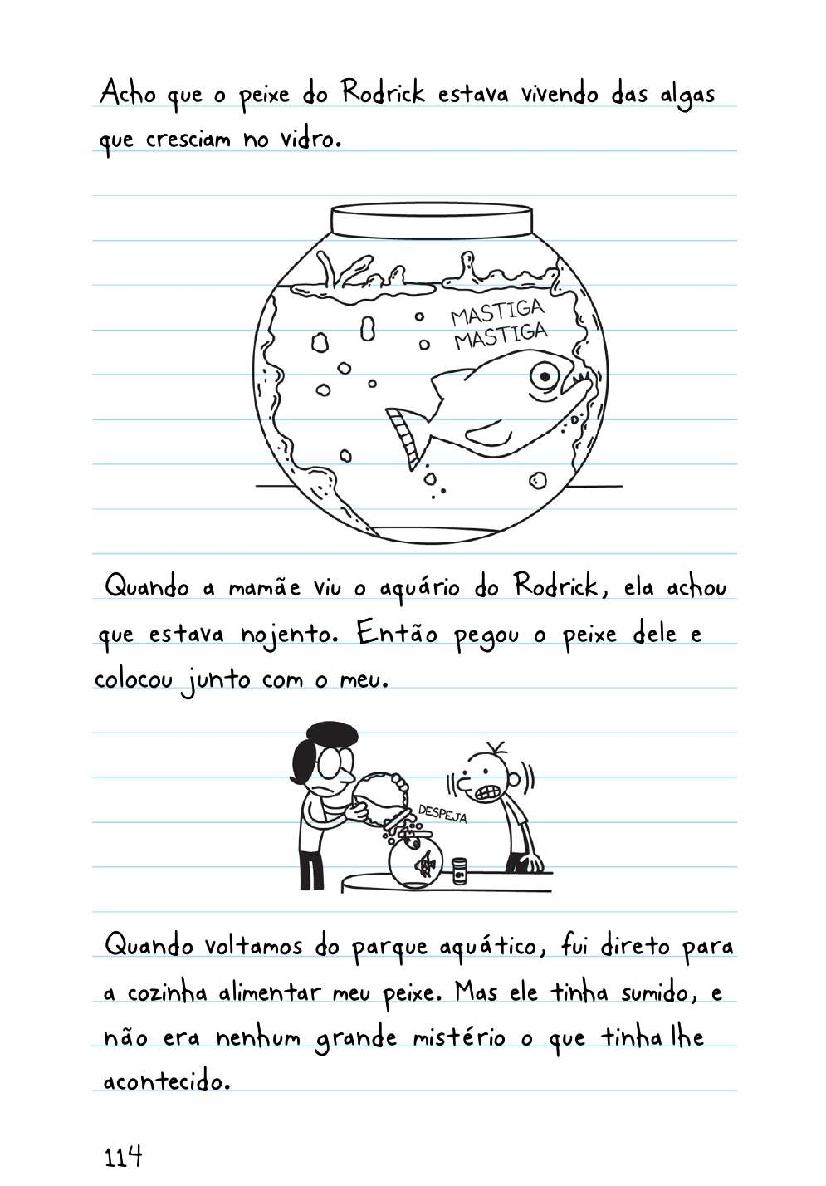 Acho que o peixe do Rodrick estava vivendo das algas
que cresciam no vidro.
MASTIGA
MASTIGA
Quando a mamãe viu o aquário do Rodrick, ela achou
que estava nojento. Então pegou o peixe dele e
colocou junto com o meu.
DESPEJA
Quando voltamos do parque aquático, fui direto para
a cozinha alimentar meu peixe. Mas ele tinha sumido, e
não era nenhum grande mistério o que tinha lhe
acontecido.
114